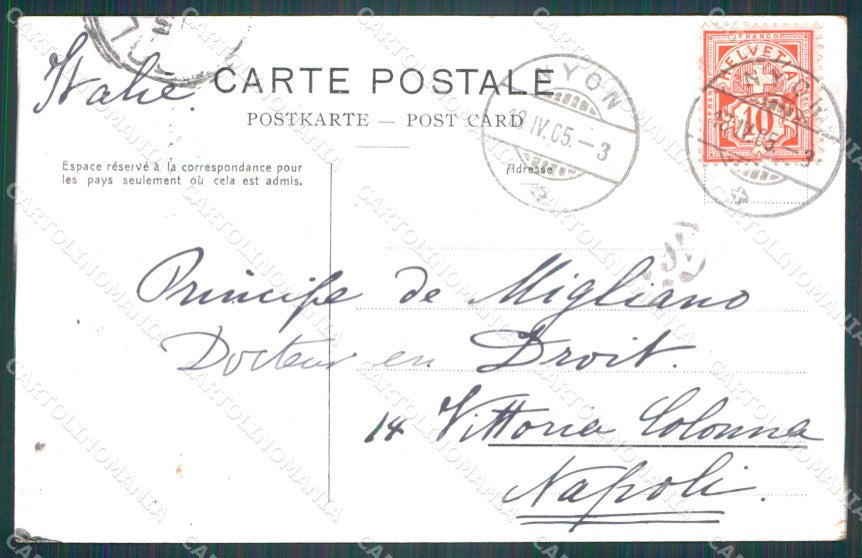 Italie.
CARTE POSTALE
POSTKARTE — POST CARD
Espace réservé à la correspondance pour
les pays seulement où cela est admis.
Adresse
NYON
12.IV.05.–3
FRANCO
HELVETIA
10
NYON
12.IV.05.–3
Principe de Migliano
Docteur en Droit.
14 Vittoria Colonna
Napoli.
CARTOLINOMANIA